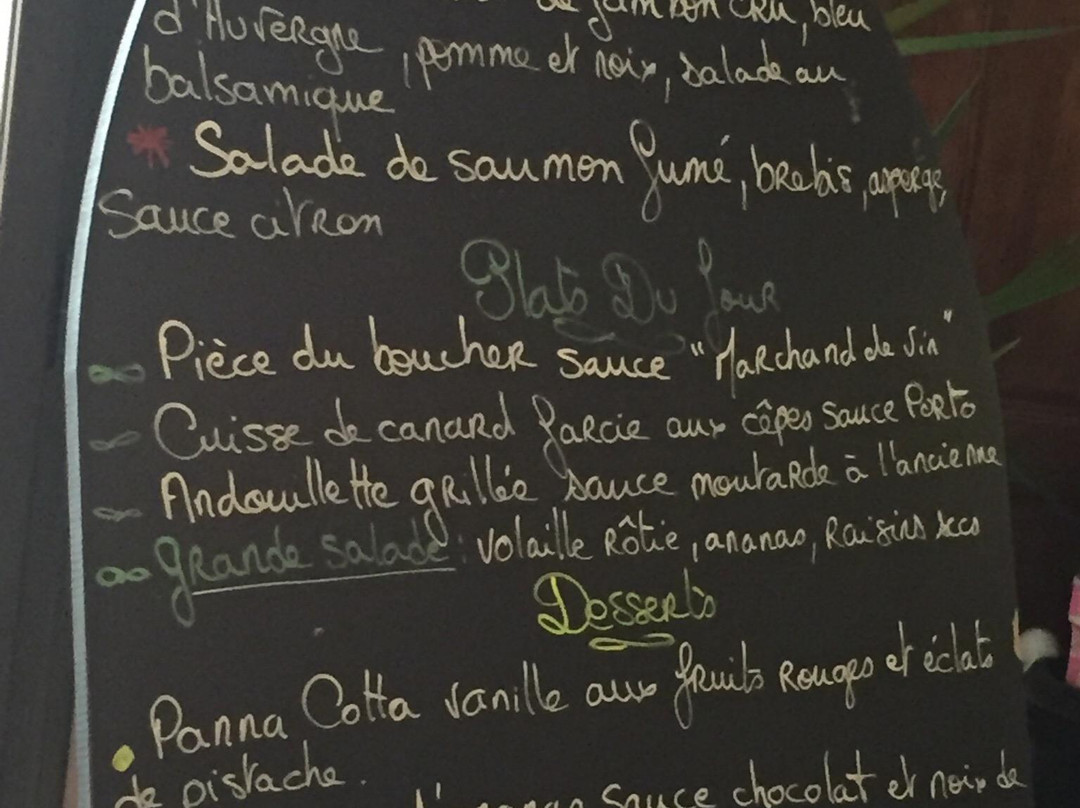 de jambon cru, bleu
d'Auvergne, pomme et noix, salade au
balsamique
Salade de saumon fumé, brebis, asperge,
Sauce citron
Plats Du Jour
Pièce du boucher sauce "Marchand de Vin"
Cuisse de canard farcie aux cêpes sauce Porto
Andouillette grillée sauce moutarde à l'ancienne
grande salade : volaille Rôtie, ananas, Raisins secs
Desserts
Panna Cotta vanille aux fruits Rouges et éclats
de pistache.
sauce chocolat et noix de